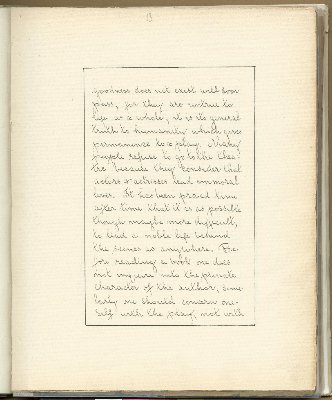 13
goodness does not exist with soor
plass, for they are untrue to
life as a whole; it is its general
truth to humanity which gives
permanence to a play. Many
people refuse to go to the thea-
tre because they consider that
actors & actresses lead immoral
lives. It has been proved time
after time that it is as possible
though maybe more difficult,
to lead a noble life behind
the scenes as anywhere. Be-
fore reading a book one does
not inquire into the private
character of the author, simi-
larly one should concern one-
self with the play, not with